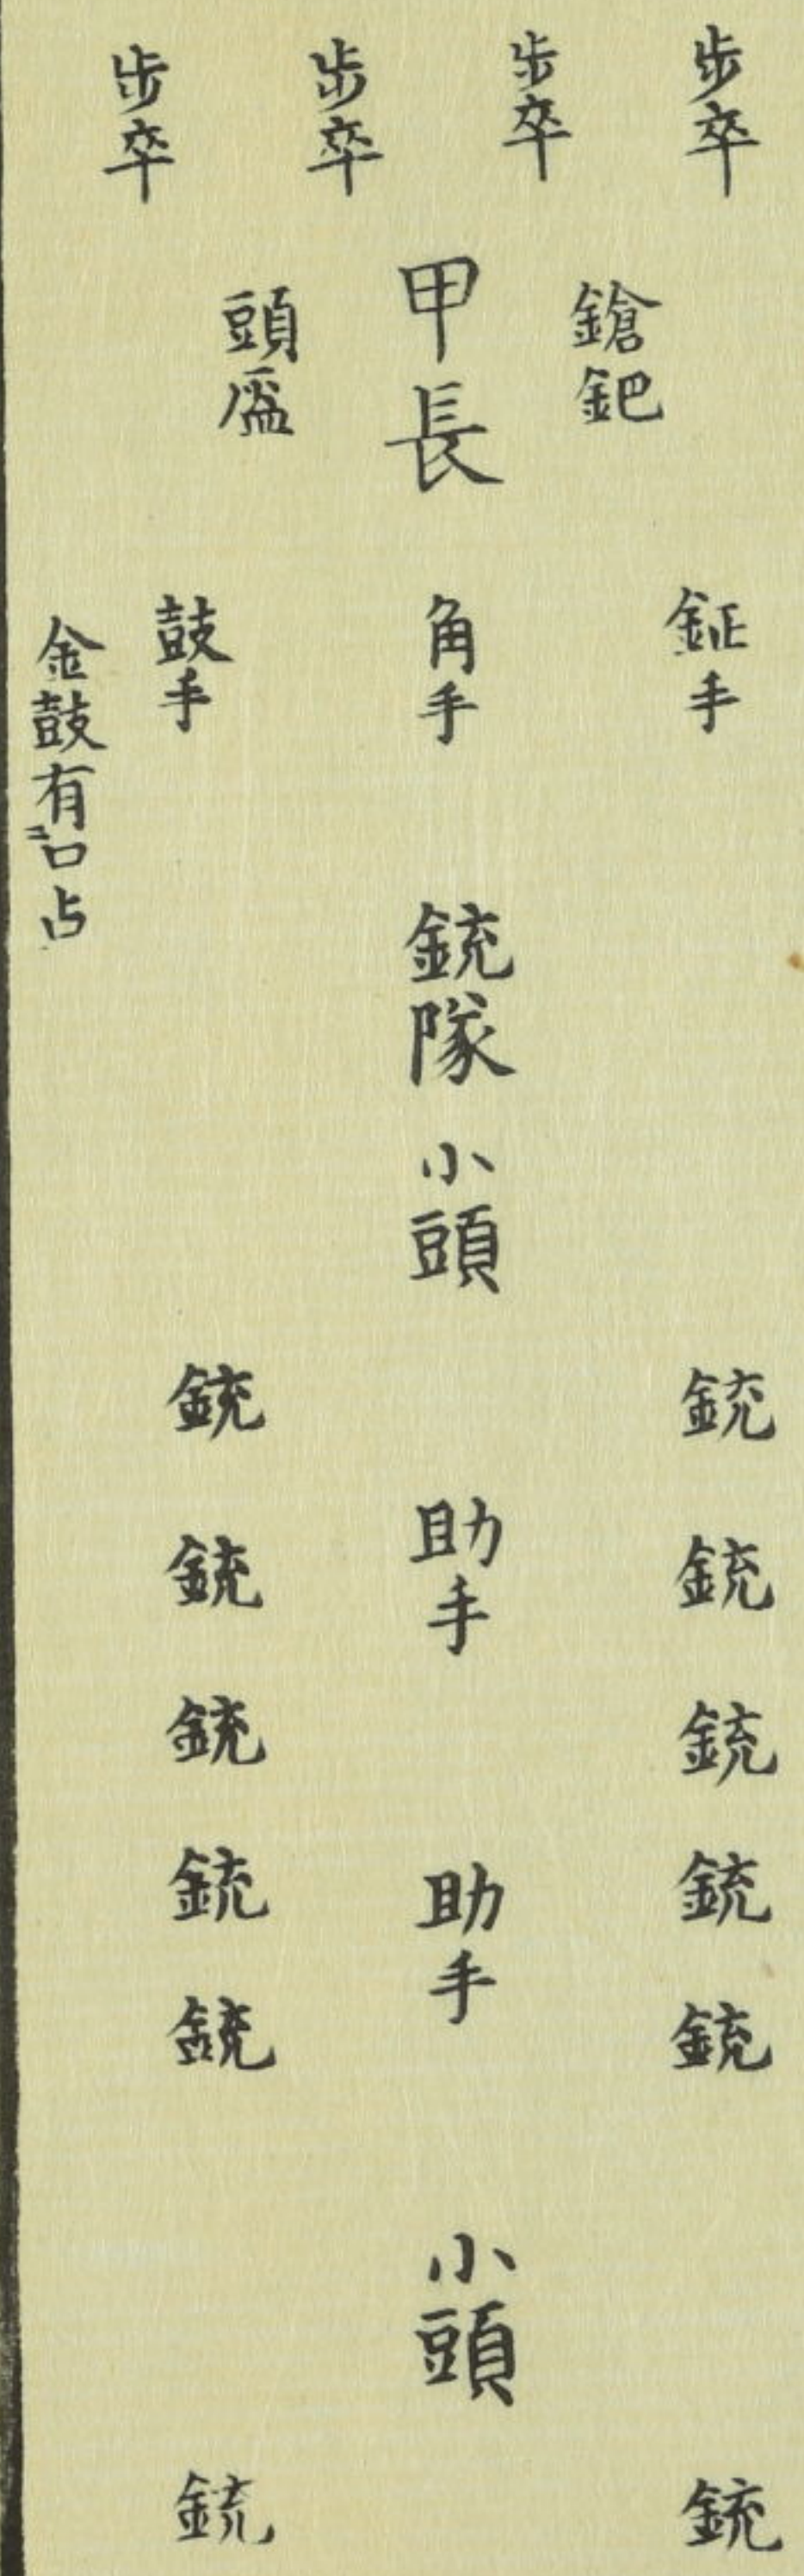 步卒
步卒
步卒
步卒
鎗鈀
甲長
頭盔
鉦手
角手
鼓手
金鼓有口占
銃隊
小頭
銃
銃
助手
銃
銃
銃
銃
助手
銃
銃
銃
銃
小頭
銃
銃